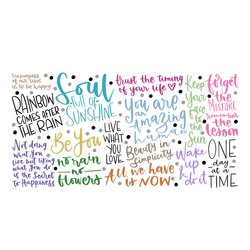 the purpose of
our lives is
to be happy
RAINBOW
COMES AFTER
THE RAIN
Soul
full of
SUNSHINE
trust the timing
of your life
You are
an
amazing
human
Keep
your
face
Sun
forget
the
MISTAKE
remember
the lesson
Not doing
what you
like but liking
what you
do is the Secret
to Happiness
Be You
no rain
no
flowers
LIVE
WHAT
YOU
LOVE
Beauty in
Simplicity
All we have
is NOW
Wake
up
do it
ONE
day
AT A
TIME